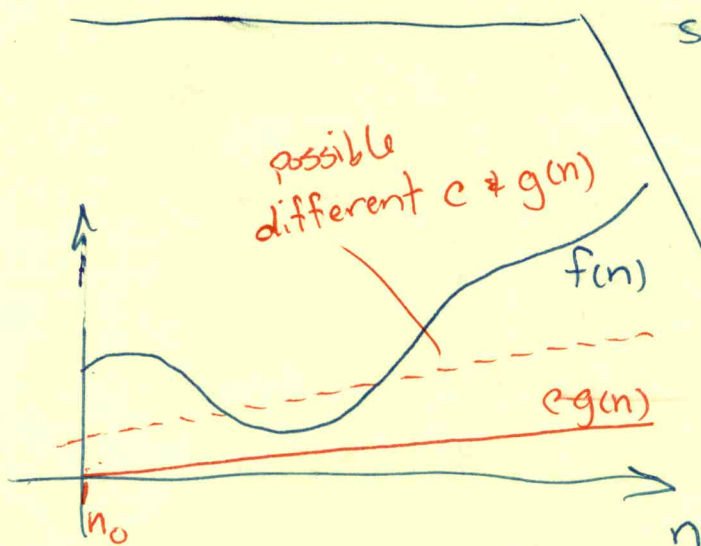 s
possible
different c * g(n)
f(n)
c·g(n)
n₀
n